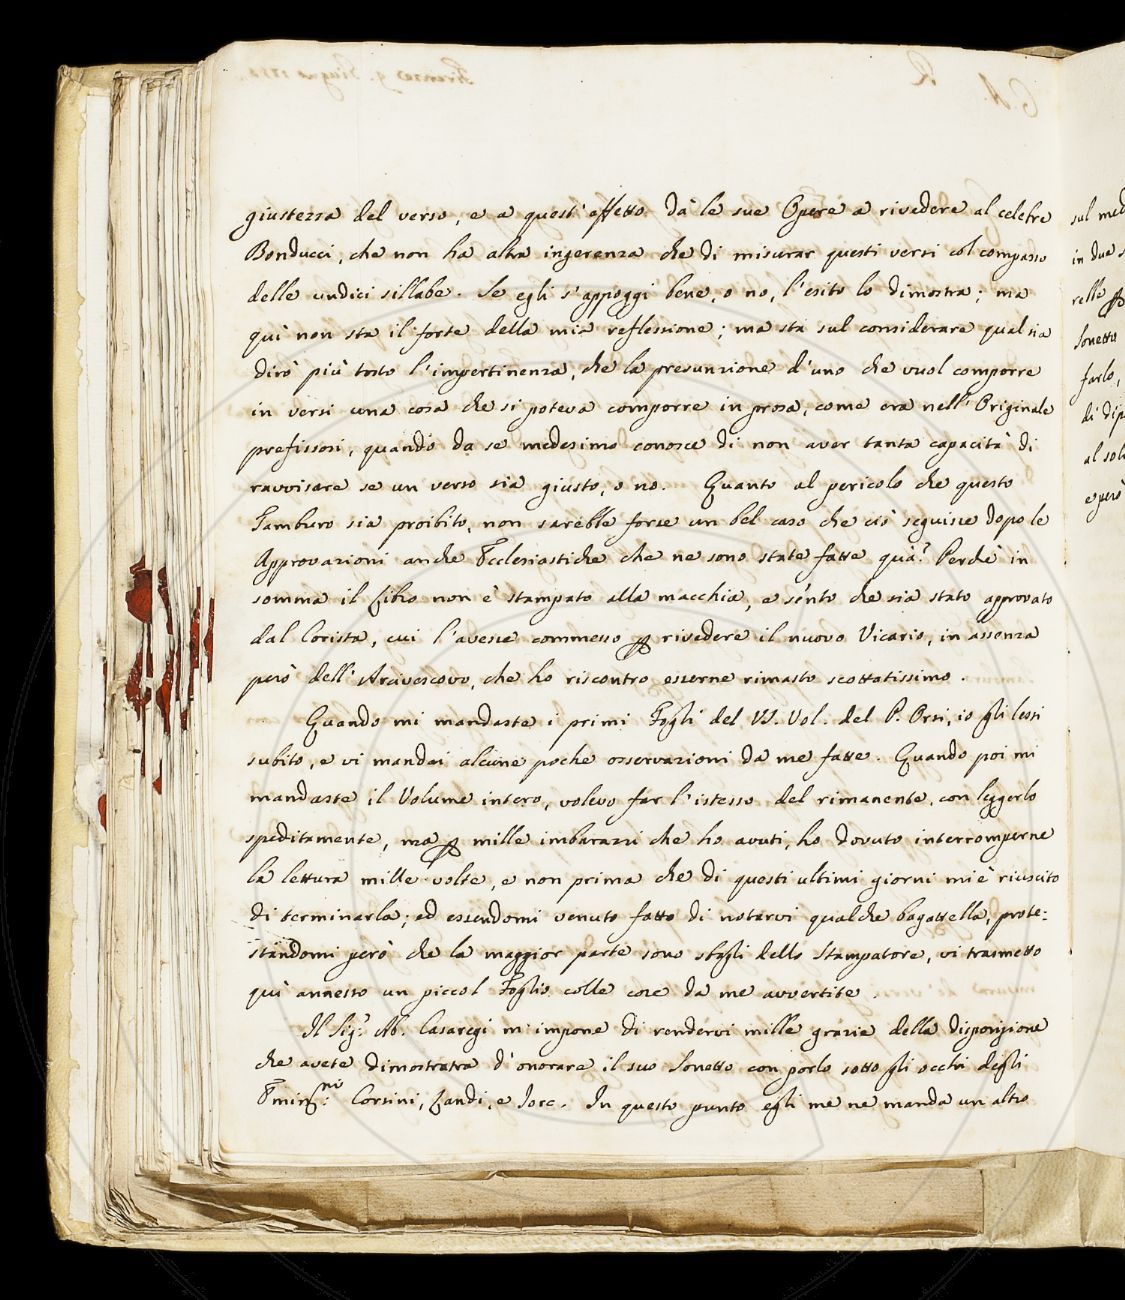 giustezza del verso, e a quest'effetto dà le sue Opere a rivedere al celebre
Bonducci, che non ha altra ingerenza che di misurar questi versi col compasso
delle undici sillabe. Se egli s'appoggi bene, o no, l'esito lo dimostra; ma
quì non sta il forte della mia reflessione; ma sta sul considerare qual sia
dirò più tosto l'impertinenza, che la presunzione d'uno che vuol comporre
in versi una cosa che si poteva comporre in prosa, come era nell'Originale
prefissosi, quando da se medesimo conosce di non aver tanta capacità di
ravvisare se un verso sia giusto, o no. Quanto al pericolo che questo
Tamburo sia proibito, non sarebbe forse un bel caso che ciò seguisse dopo le
Approvazioni anche Ecclesiastiche che ne sono state fatte quà? Perchè in
somma il Libro non è stampato alla macchia, e sento che sia stato approvato
dal Corista, cui l'avesse commesso p rivedere il nuovo Vicario, in assenza
però dell'Arcivescovo, che ho riscontro esserne rimasto scottatissimo.
Quando mi mandaste i primi Fogli del VI. Vol. del P. Orsi, io gli lessi
subito, e vi mandai alcune poche osservazioni da me fatte. Quando poi mi
mandaste il Volume intero, volevo far l'istesso del rimanente, con leggerlo
speditamente, ma p mille imbarazzi che ho avuti, ho dovuto interromperne
la lettura mille volte, e non prima che di questi ultimi giorni mi è riuscito
di terminarla; ed essendomi venuto fatto di notarvi qualche bagattella, prote:
standomi però che la maggior parte sono sbagli dello Stampatore, vi trasmetto
quì annesso un piccol Foglio colle cose da me avvertite.
Il Sig.r Ab. Casaregi m'impone di rendervi mille grazie della disposizione
che avete dimostrata d'onorare il suo Sonetto con porlo sotto gli occhi degli
Emin.mi Corsini, Landi, e In questo punto egli me ne manda un altro
sul med
in due s
Sonetto
farlo,
di dip
al sol
e però